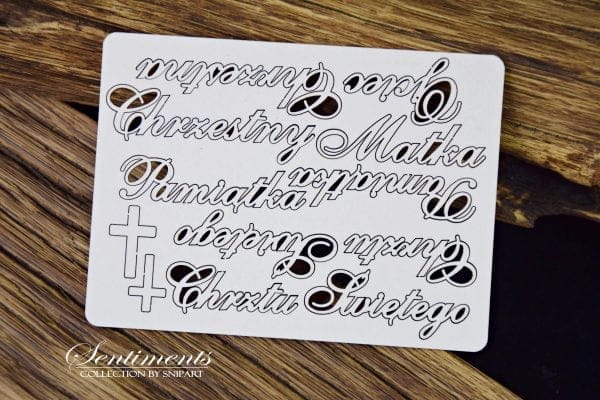 Ojciec Chrzestna
Chrzestny Matka
Pamiątka Pamiątka
Chrztu Świętego
Chrztu Świętego
Sentiments
COLLECTION BY SNIPART